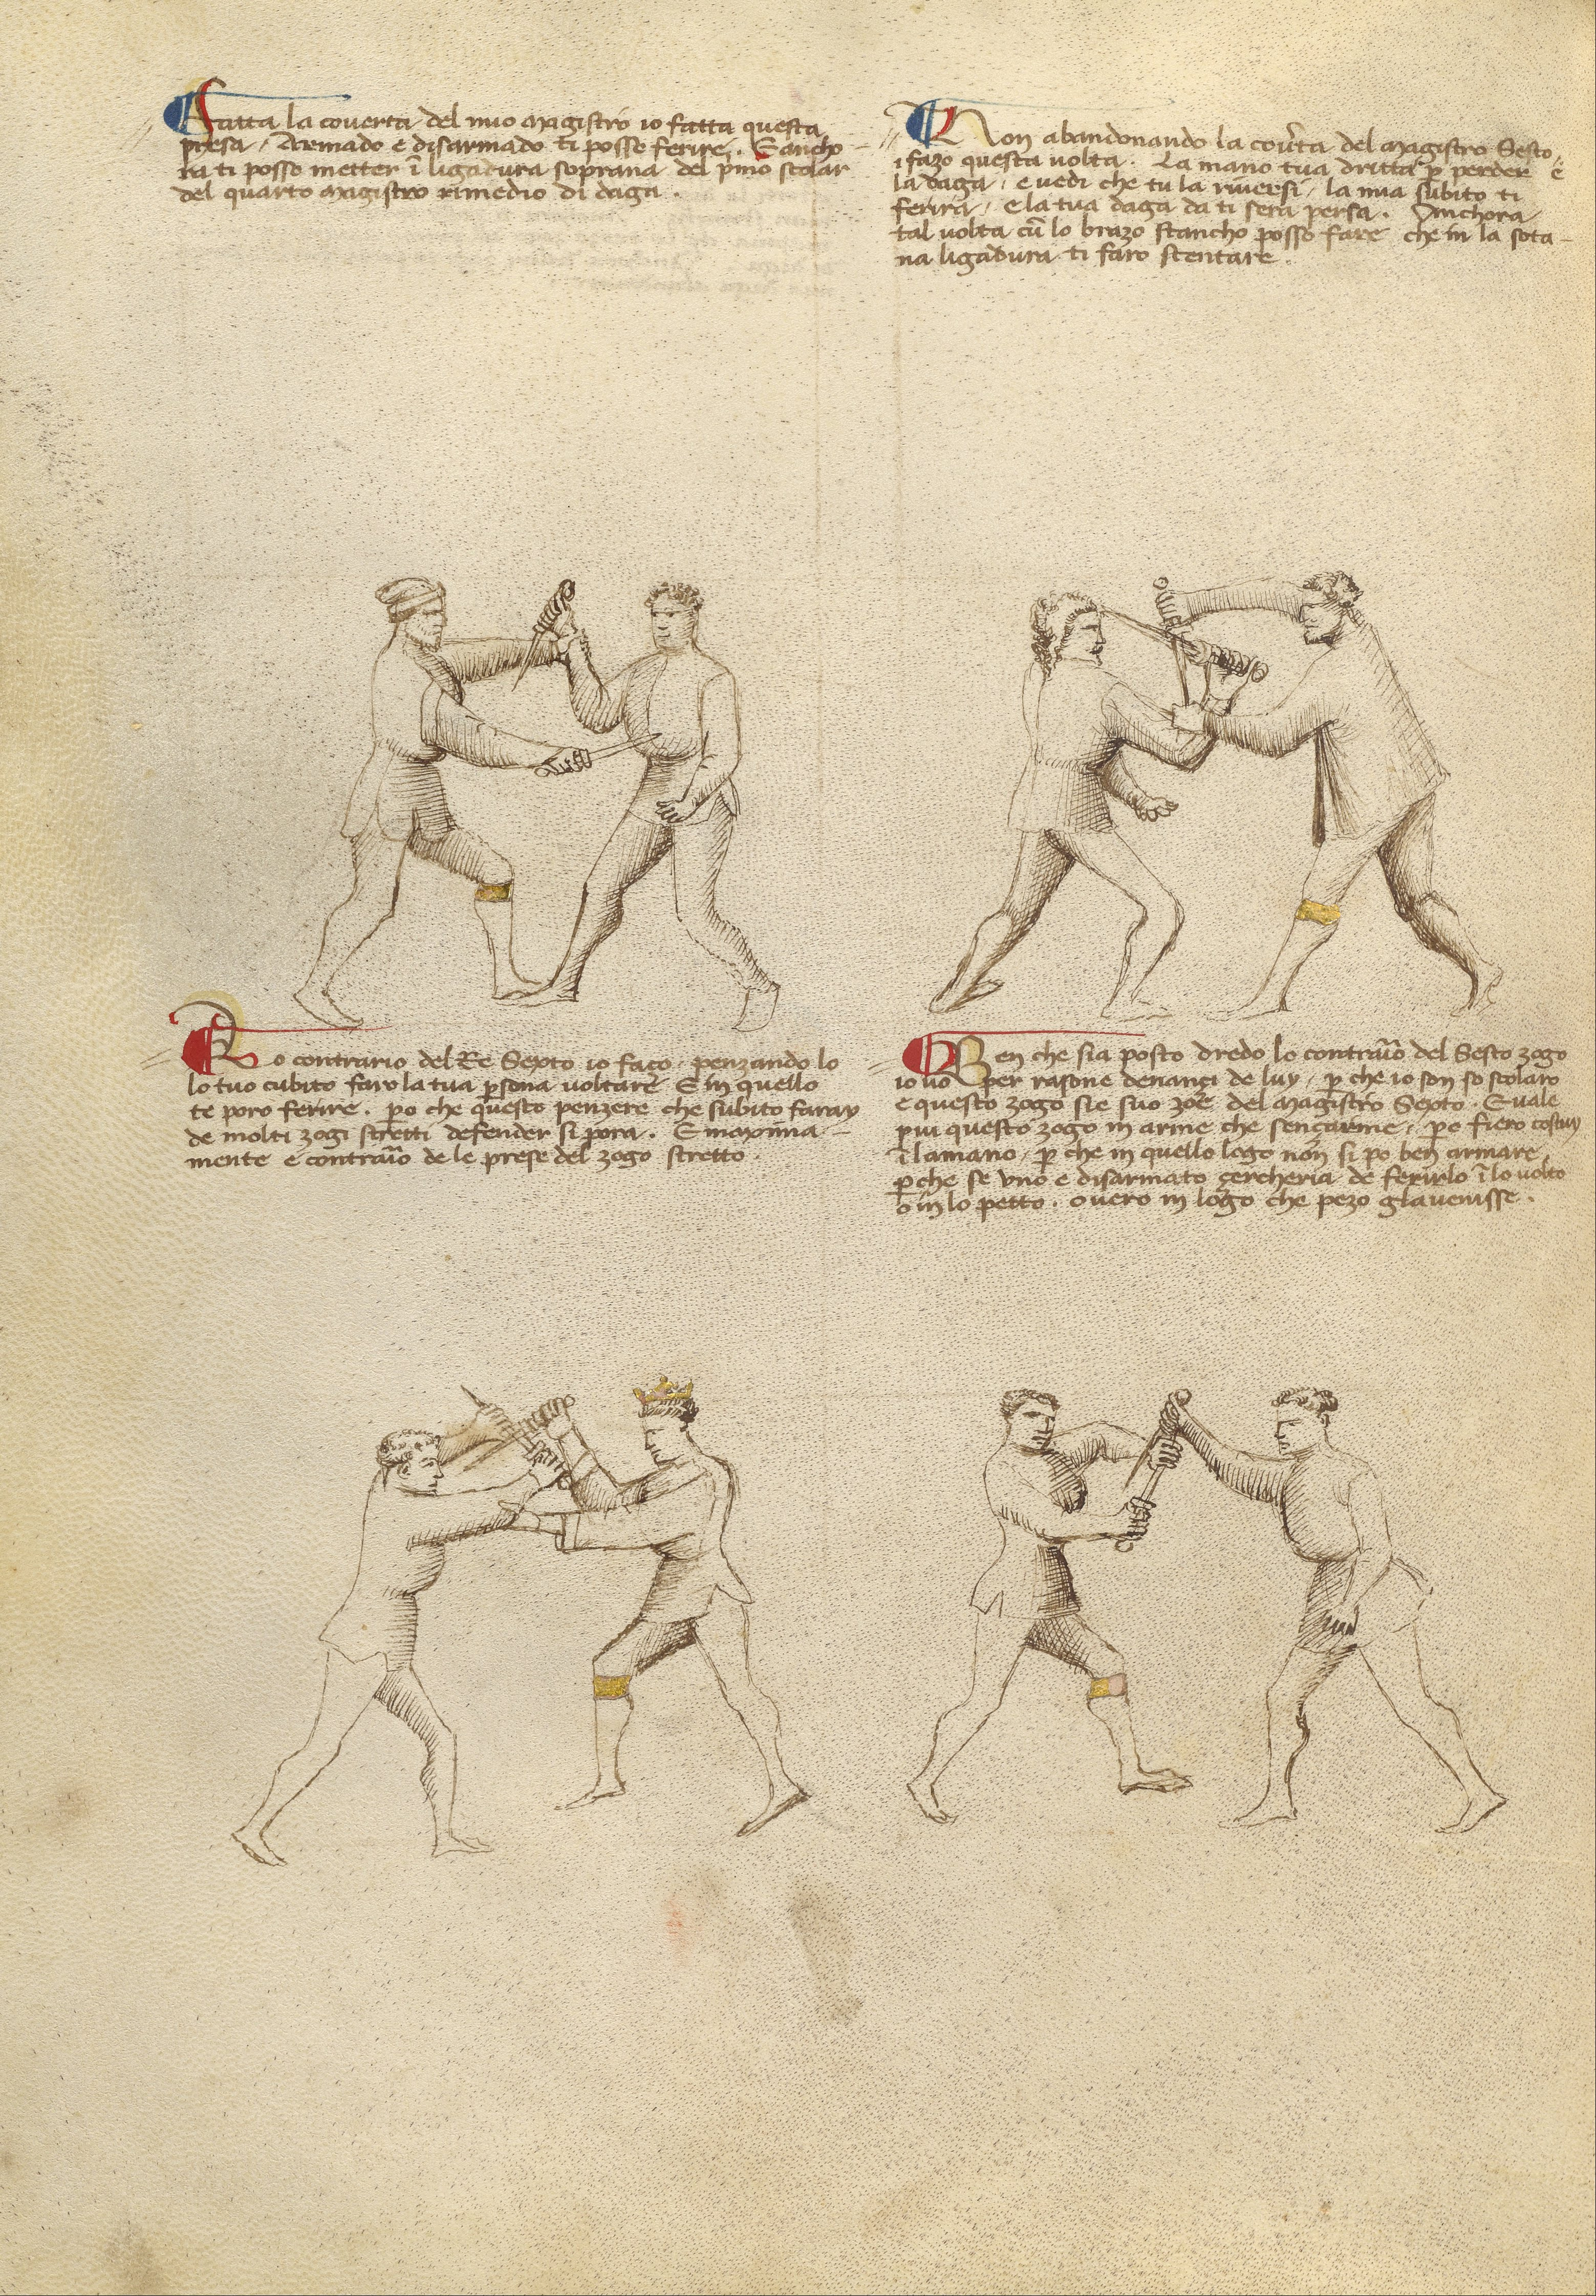 Fatta la coverta del mio magistro io fatta questa
presa, Armado e disarmado ti posso ferire. E ancho
ra ti posso metter ī ligadura soprana del p̄mo scolar
del quarto magistro rimedio di daga.
Non abandonando la cov̄ta del magistro Sesto
i fazo questa volta. La mano tua dritta p̱ perder è
la daga, e vedi che tu la riversi, la mia subito ti
ferira, e la tua daga da ti sera persa. Anchora
tal volta cū lo brazo stancho posso fare che in la sota-
na ligadura ti faro stentare.
Lo contrario del Re Sexto io faço, penzando lo
lo tuo cubito faro la tua p̱sona voltare E in quello
te poro ferire. p̱o che questo penzere che subito faray
de molti zogi stretti defender si pora. E maxima-
mente e contraīo de le prese del zogo stretto.
Ben che sia posto dredo lo contraīo del Sesto zogo
io vo per rasone denançi de luy, p̱ che io son so scolaro
e questo zogo sie suo zoe del magistro Sexto. E vale
piu questo zogo in arme che sençarme, p̱o fiero costuy
ī la mano, p̱ che in quello logo non si po ben armare,
p̱che se uno e disarmato çercheria de ferirlo ī lo volto
o in lo petto. overo in logo che pezo gl'avenisse.